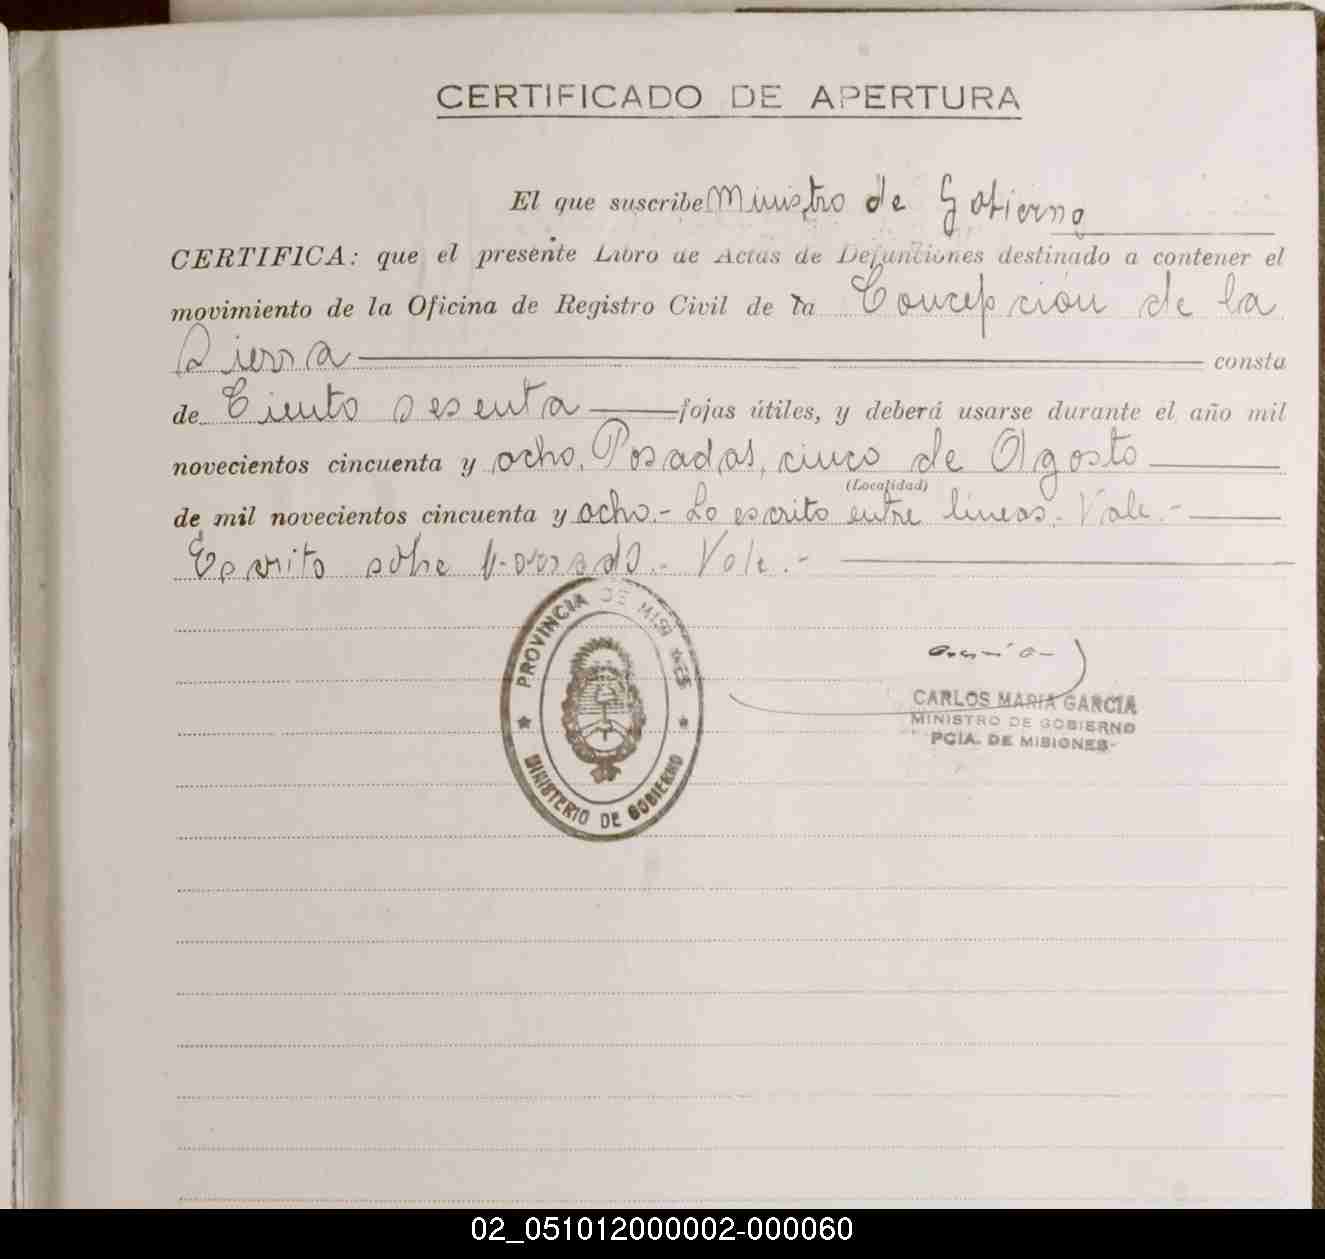 CERTIFICADO DE APERTURA
El que suscribe Ministro de Gobierno
CERTIFICA: que el presente Libro de Actas de Defunciones destinado a contener el
movimiento de la Oficina de Registro Civil de la Concepción de la
Sierra consta
de Ciento sesenta fojas útiles, y deberá usarse durante el año mil
novecientos cincuenta y ocho. Posadas, cinco de Agosto
(Localidad)
de mil novecientos cincuenta y ocho.- Lo escrito entre líneas. Vale.-
Escrito sobre borrado.- Vale.-
PROVINCIA DE MISIONES
MINISTERIO DE GOBIERNO
CARLOS MARIA GARCIA
MINISTRO DE GOBIERNO
PCIA. DE MISIONES
02_051012000002-000060